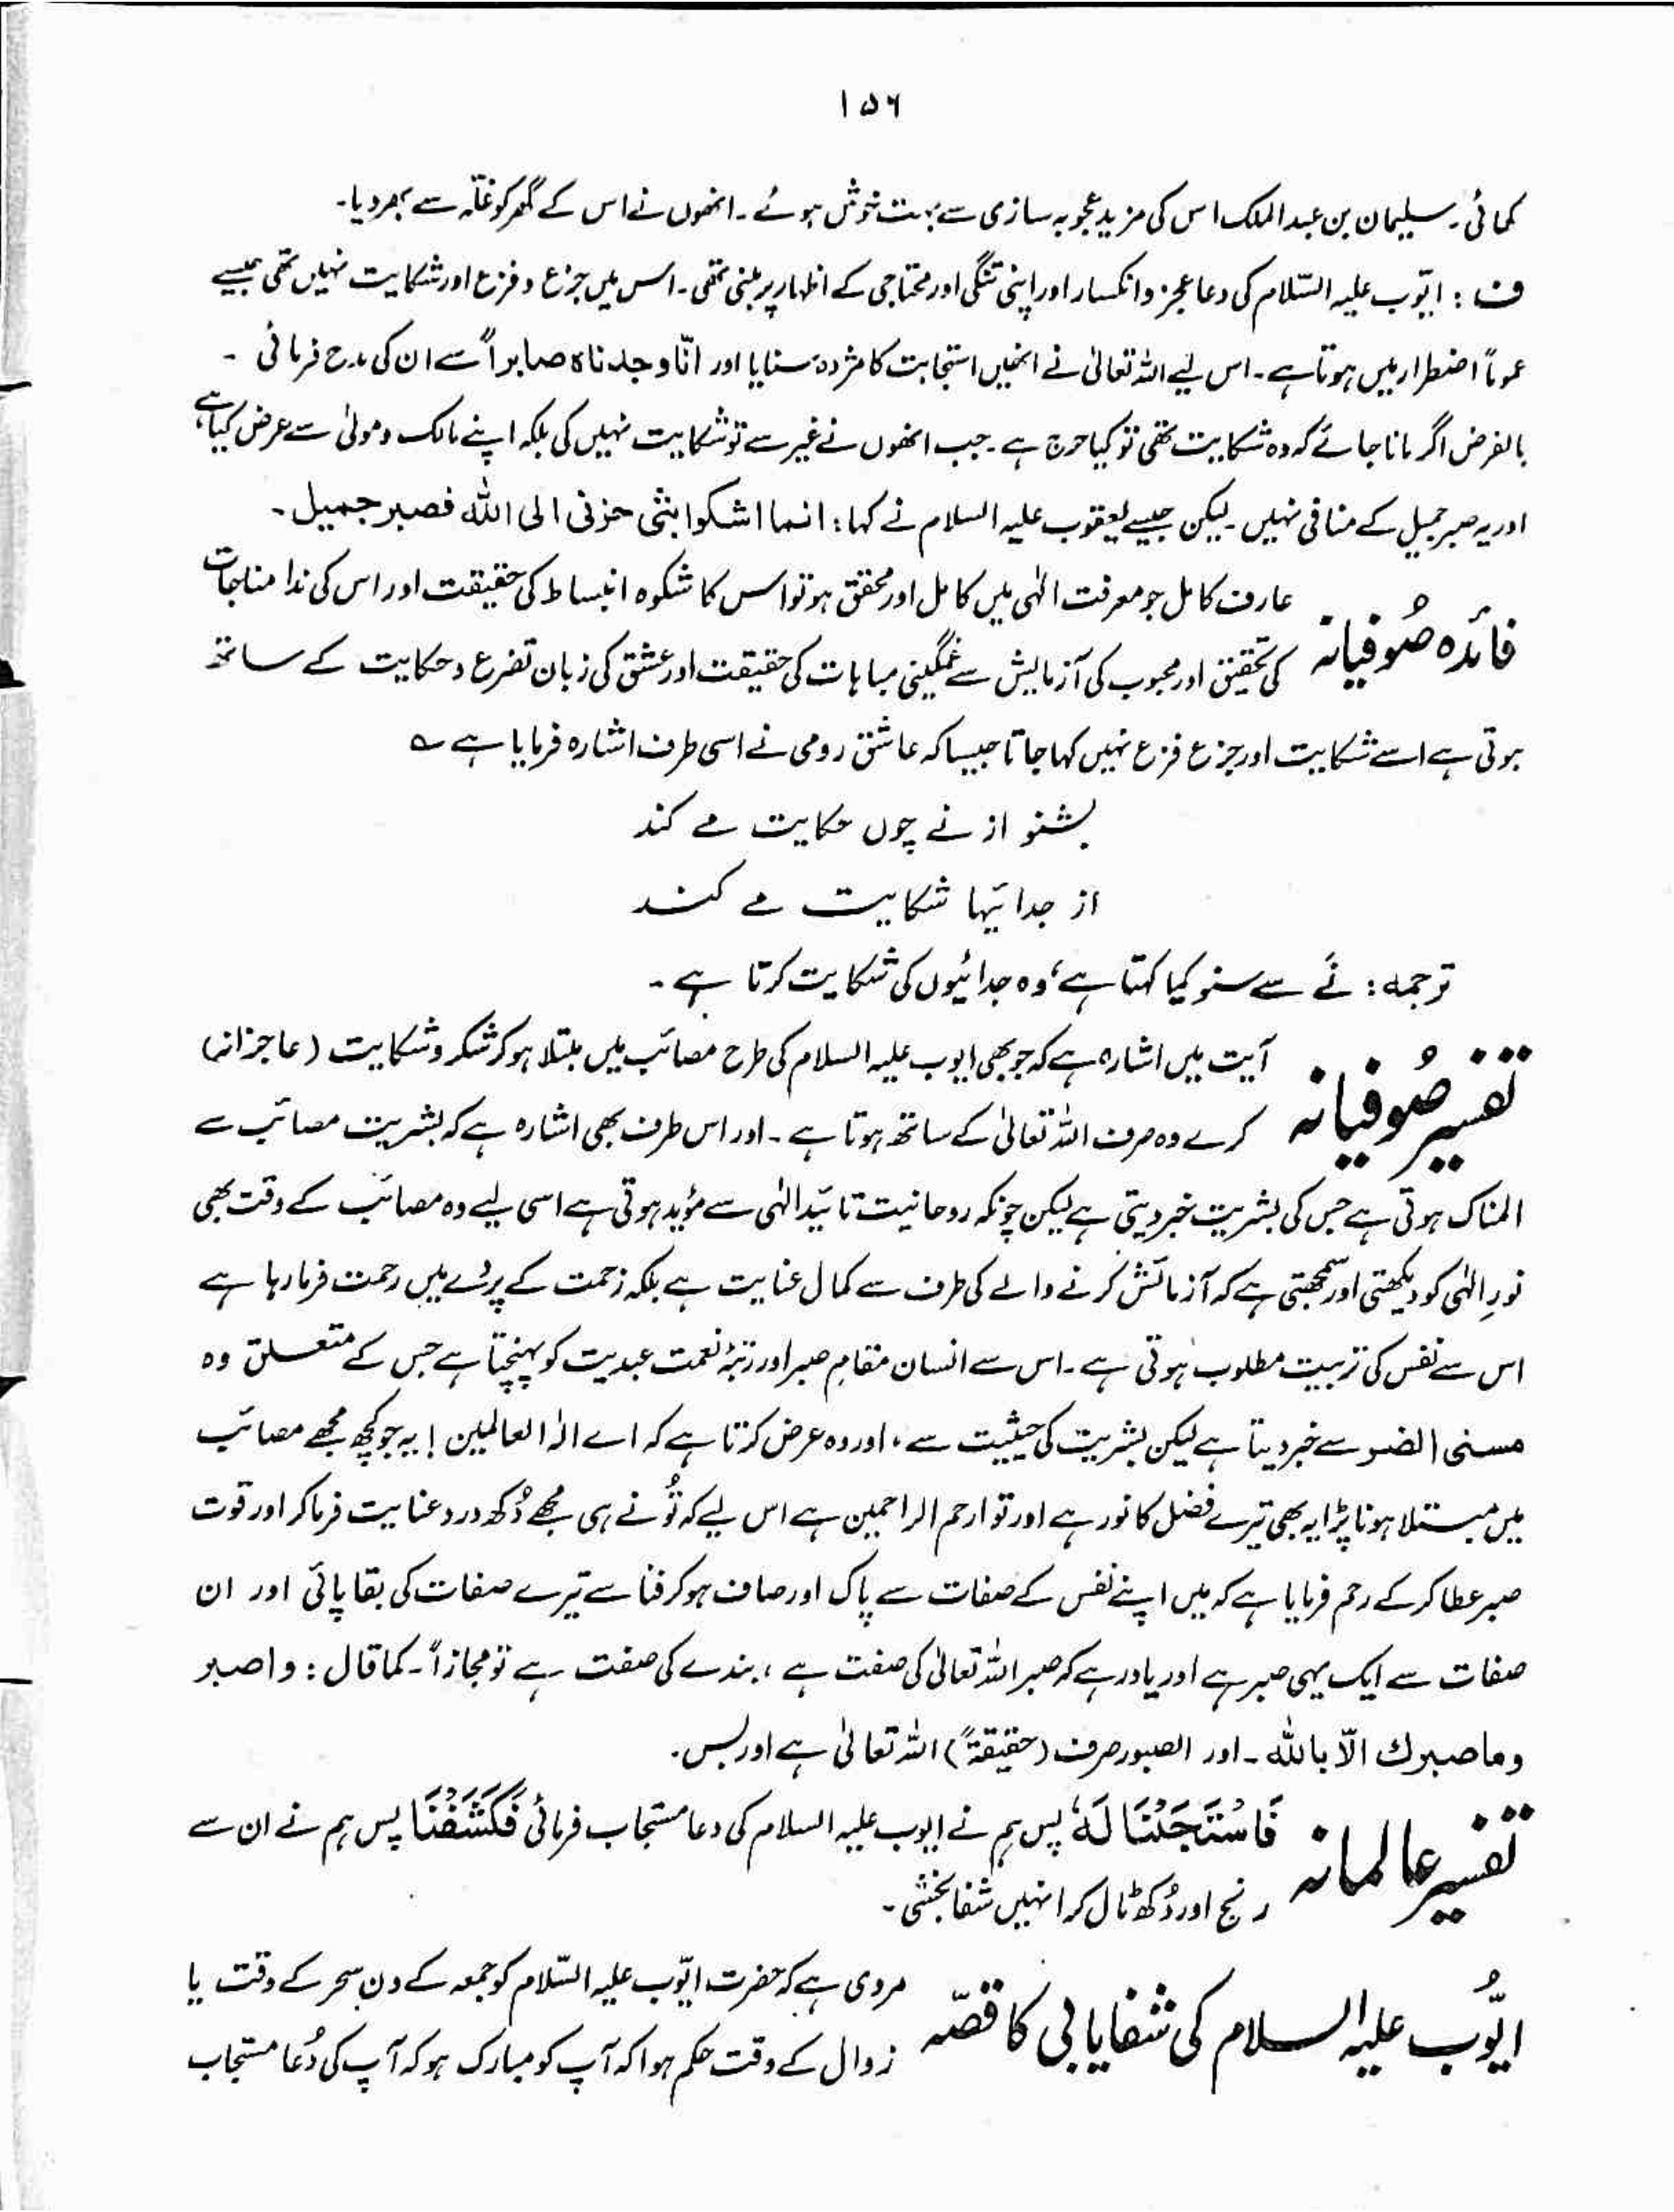 ۱۵۶
کمائی۔ سلیمان بن عبد الملک اس کی مزید عجوبہ سازی سے بہت خوش ہوئے۔ انھوں نے اس کے گھر کو غلّہ سے بھر دیا۔
ف : ایّوب علیہ السّلام کی دعا عجز و انکسار اور اپنی تنگی اور محتاجی کے اظہار پر مبنی تھی۔ اس میں جزع و فزع اور شکایت نہیں تھی جیسے
عموماً اضطرار میں ہوتا ہے۔ اس لیے اللہ تعالیٰ نے انھیں استجابت کا مژدہ سنایا اور انّا وجدناہ صابراً سے ان کی مدح فرمائی ۔
بالفرض اگر مانا جائے کہ وہ شکایت تھی تو کیا حرج ہے۔ جب انھوں نے غیر سے تو شکایت نہیں کی بلکہ اپنے مالک و مولیٰ سے عرض کیا ہے،
اور یہ صبر جمیل کے منافی نہیں۔ لیکن جیسے یعقوب علیہ السلام نے کہا : انما اشکوا بثی حزنی الی اللہ فصبر جمیل۔
فائدہ صُوفیانہ عارف کامل جو معرفت الٰہی میں کامل اور محقق ہو تو اس کا شکوہ انبساط کی حقیقت اور اس کی ندا مناجات
کی تحقیق اور محبوب کی آزمایش سے غمگینی مباہات کی حقیقت اور عشق کی زبان تضرع و حکایت کے ساتھ
ہوتی ہے اسے شکایت اور جزع فزع نہیں کہا جاتا جیسا کہ عاشق رومی نے اسی طرف اشارہ فرمایا ہے ؎
بشنو از نے چوں حکایت مے کند
از جدائیہا شکایت مے کند
ترجمہ : نَے سے سنو کیا کہتا ہے، وہ جدائیوں کی شکایت کرتا ہے۔
تفسیر صُوفیانہ آیت میں اشارہ ہے کہ جو بھی ایوب علیہ السلام کی طرح مصائب میں مبتلا ہو کر شکر و شکایت (عاجزانہ)
کرے وہ صرف اللہ تعالیٰ کے ساتھ ہوتا ہے۔ اور اس طرف بھی اشارہ ہے کہ بشریت مصائب سے
المناک ہوتی ہے جس کی بشریت خبر دیتی ہے لیکن چونکہ روحانیت تائید الٰہی سے مؤید ہوتی ہے اسی لیے وہ مصائب کے وقت بھی
نورِ الٰہی کو دیکھتی اور سمجھتی ہے کہ آزمائش کرنے والے کی طرف سے کمال عنایت ہے بلکہ زحمت کے پردے میں رحمت فرما رہا ہے
اس سے نفس کی تربیت مطلوب ہوتی ہے۔ اس سے انسان مقامِ صبر اور رتبۂ نعمت عبدیت کو پہنچتا ہے جس کے متعلق وہ
مسنی الضر سے خبر دیتا ہے لیکن بشریت کی حیثیت سے، اور وہ عرض کرتا ہے کہ اے الٰہ العالمین! یہ جو کچھ مجھے مصائب
میں مبتلا ہونا پڑا یہ بھی تیرے فضل کا نور ہے اور تو ارحم الراحمین ہے اس لیے کہ تُو نے ہی مجھے دُکھ درد عنایت فرما کر اور قوت
صبر عطا کر کے رحم فرمایا ہے کہ میں اپنے نفس کے صفات سے پاک اور صاف ہو کر فنا سے تیرے صفات کی بقا پائی اور ان
صفات سے ایک یہی صبر ہے اور یاد رہے کہ صبر اللہ تعالیٰ کی صفت ہے، بندے کی صفت ہے تو مجازاً۔ کما قال : واصبر
وما صبرك الّا باللہ۔ اور الصبور صرف (حقیقۃً) اللہ تعالیٰ ہے اور بس۔
تفسیر عالمانہ فَاسْتَجَبْنَا لَہٗ پس ہم نے ایوب علیہ السلام کی دعا مستجاب فرمائی فَکَشَفْنَا پس ہم نے ان سے
رنج اور دُکھ ٹال کر انہیں شفا بخشی۔
ایُّوب علیہ السلام کی شفایابی کا قصّہ مروی ہے کہ حضرت ایّوب علیہ السّلام کو جمعہ کے دن سحر کے وقت یا
زوال کے وقت حکم ہوا کہ آپ کو مبارک ہو کہ آپ کی دُعا مستجاب